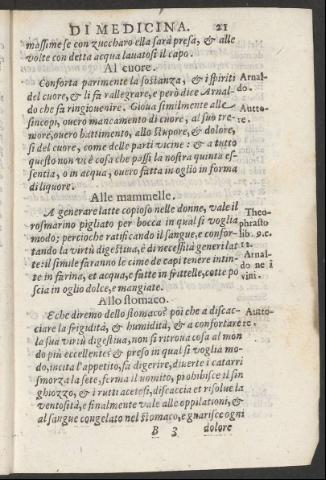 DI MEDICINA. 21
massime se con zuccharo ella sarà presa, & alle
volte con detta acqua lauatosi il capo.
Al cuore.
Conforta parimente la sostanza, & i spiriti
Arnal-
del cuore, & li fa rallegrare, e però dice Arnal-
do.
do che fa ringiouenire. Gioua similmente alle
Autto-
sincopi, ouero mancamento di cuore, al suo tre-
re.
more, ouero battimento, allo stupore, & dolore,
sì del cuore, come delle parti vicine: & a tutto
questo non vi è cosa che passi la nostra quinta es-
sentia, o in acqua, ouero fatta in oglio in forma
di liquore.
Alle mammelle.
A generare latte copioso nelle donne, vale il
Theo-
rosmarino pigliato per bocca in qual si voglia
phrasto
modo; percioche ratificando il sangue, e confor-
lib. 9. c.
tando la virtù digestiua, è di necessità generi lat
12.
te: il simile faranno le cime de capi tenere intin-
Arnal-
te in farina, et acqua, e fatte in frattelle, cotte po
do ne i
scia in oglio dolce, e mangiate.
vini.
Allo stomaco.
E che diremo dello stomaco? poi che a discac-
Autto-
ciare la frigidità, & humidità, & a confortare
re.
la sua virtù digestiua, non si ritroua cosa al mon
do più eccellente: & preso in qual si voglia mo-
do, incita l'appetito, fa digerire, diuerte i catarri
smorza la sete, ferma il uomito, prohibisce il sin
ghiozzo, & i rutti acetosi, discaccia et risolue la
ventosità, e finalmente vale alle oppilationi, &
al sangue congelato nel stomaco, e guarisce ogni
B 3 dolore